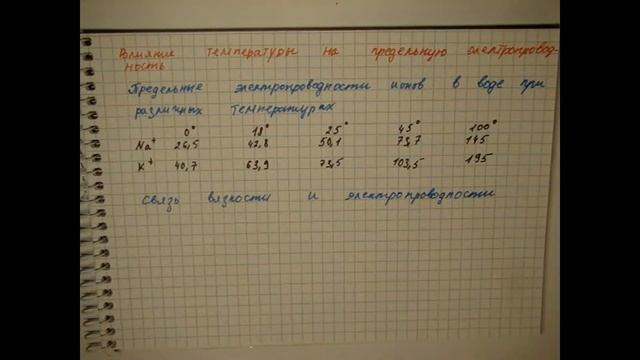 Влияние температуры на предельную электропровод-
ность
Предельные электропроводности ионов в воде при
различных температурах
0° 18° 25° 45° 100°
Na⁺ 26,5 42,8 50,1 73,7 145
K⁺ 40,7 63,9 73,5 103,5 195
Связь вязкости и электропроводности